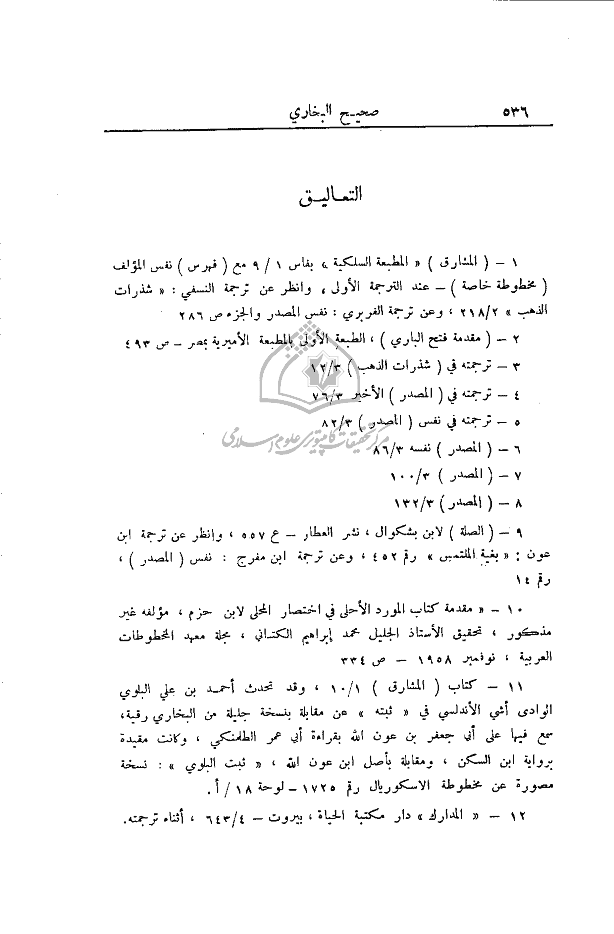 ٥٣٦
صحيح البخاري
التعاليق
١ – ( المشارق ) « المطبعة السلكية » بفاس ١ / ٩ مع ( فهرس ) نفس المؤلف
( مخطوطة خاصة ) – عند الترجمة الأولى ، وانظر عن ترجمة النسفي : « شذرات
الذهب » ٢١٨/٢ ، وعن ترجمة الفربري : نفس المصدر والجزء ص ٢٨٦
٢ – ( مقدمة فتح الباري ) ، الطبعة الأولى بالمطبعة الأميرية بمصر – ص ٤٩٣
٣ – ترجمته في ( شذرات الذهب ) ١٢/٣
٤ – ترجمته في ( المصدر ) الأخير ٧٦/٣
٥ – ترجمته في نفس ( المصدر ) ٨٢/٣
٦ – ( المصدر ) نفسه ٨٦/٣
مركز تحقيقات كامپيوتری علوم اسلامی
٧ – ( المصدر ) ١٠٠/٣
٨ – ( المصدر ) ١٣٢/٣
٩ – ( الصلة ) لابن بشكوال ، نشر العطار – ع ٥٥٧ ، وانظر عن ترجمة ابن
عون : « بغية الملتمس » رقم ٤٥٢ ، وعن ترجمة ابن مفرج : نفس ( المصدر ) ،
رقم ١٤
١٠ – « مقدمة كتاب المورد الأحلى في اختصار المحلى لابن حزم ، مؤلفه غير
مذكور ، تحقيق الأستاذ الجليل محمد إبراهيم الكتاني ، مجلة معهد المخطوطات
العربية ، نوفمبر ١٩٥٨ – ص ٣٣٤
١١ – كتاب ( المشارق ) ١٠/١ ، وقد تحدث أحمد بن علي البلوي
الوادى آشي الأندلسي في « ثبته » عن مقابلة بنسخة جليلة من البخاري رقية،
سمع فيها على أبي جعفر بن عون الله بقراءة أبي عمر الطلمنكي ، وكانت مقيدة
برواية ابن السكن ، ومقابلة بأصل ابن عون الله ، « ثبت البلوي » : نسخة
مصورة عن مخطوطة الاسكوريال رقم ١٧٢٥ – لوحة ١٨ / أ.
١٢ – « المدارك » دار مكتبة الحياة ، بيروت – ٦٤٣/٤ ، أثناء ترجمته.